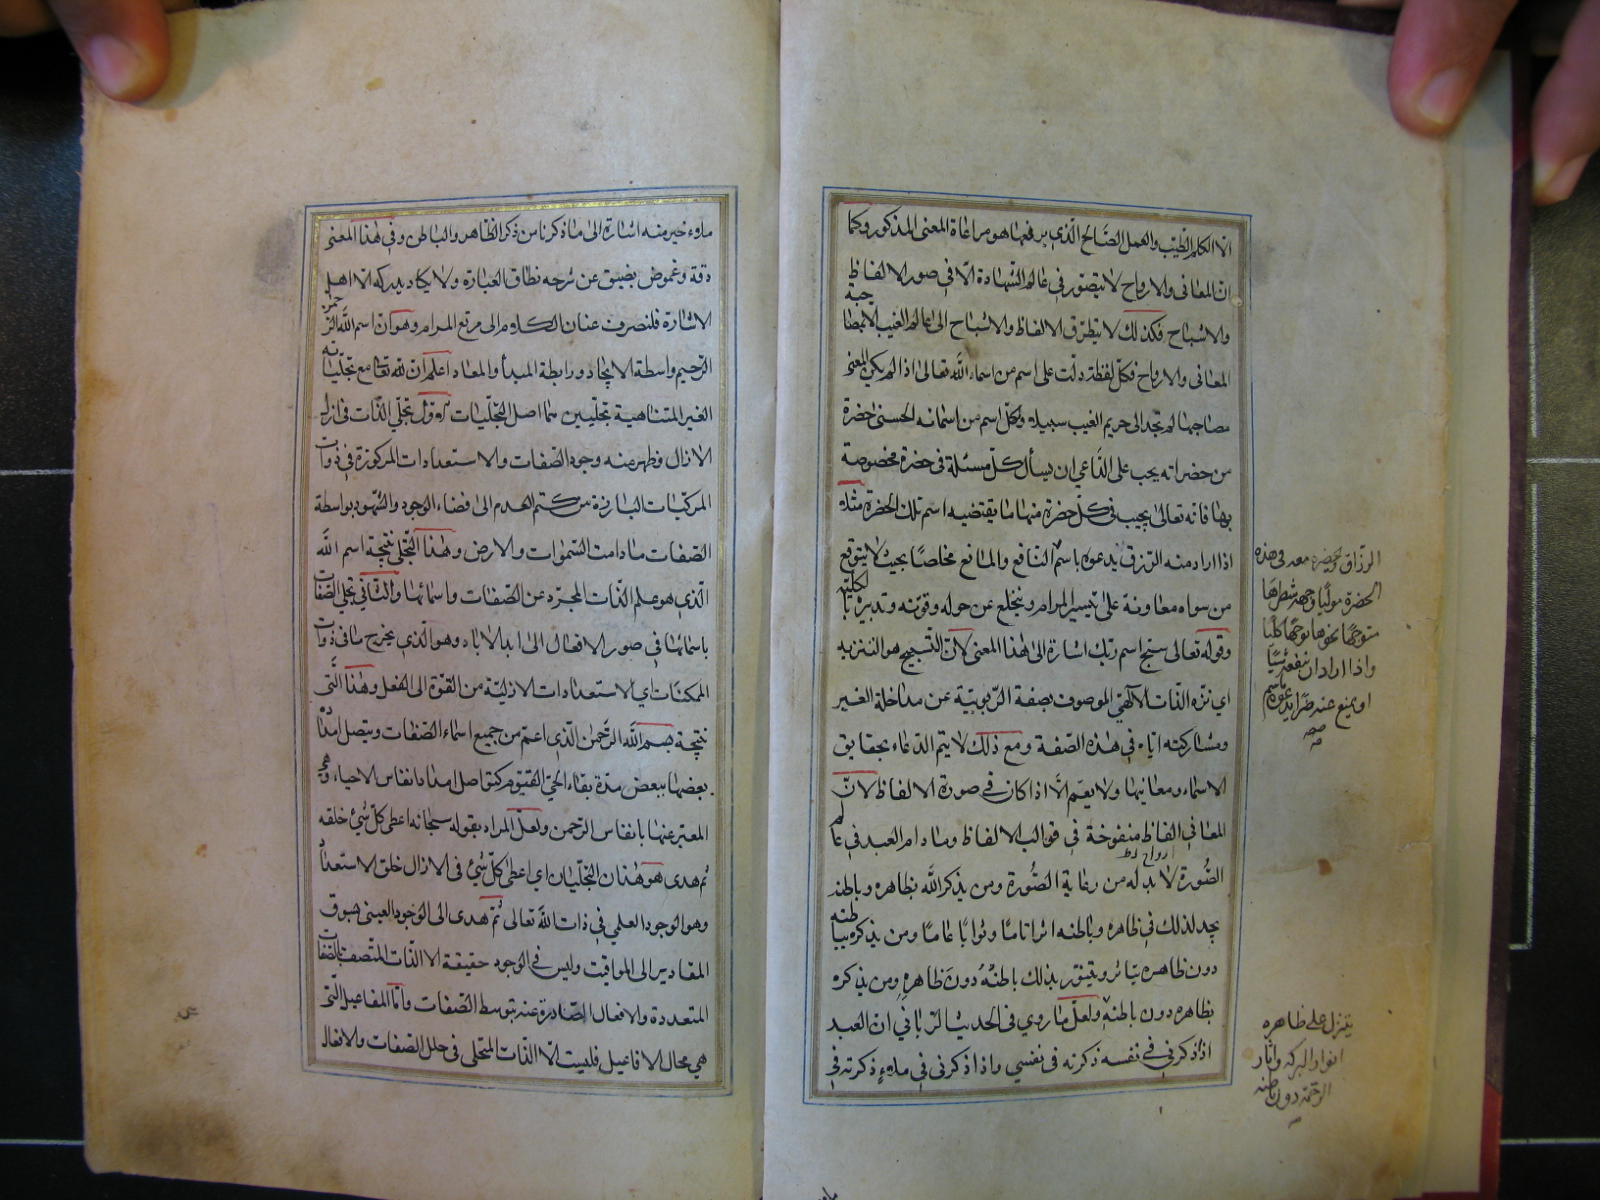 الا الكلم الطيب والعمل الصالح الذي يرفعها هو مراعاة المعنى المذكور وكما
ان المعانى والارواح لا يتصور فى عالم الشهادة الا فى صور الالفاظ
والاشباح فكذلك لا يتطرق الالفاظ والاشباح الى عالم الغيب الا بمصاحبة
المعانى والارواح فكل لفظة دلت على اسم من اسماء الله تعالى اذا لم يكن المعنى
مصاحبها لم تجد الى حريم الغيب سبيلا ولكل اسم من اسمائه الحسنى حضرة
من حضراته يجب على الداعى ان يسأل كل مسئلة فى حضرة مخصوصة
بها فانه تعالى يجيب فى كل حضرة منها ما يقتضيه اسم تلك الحضرة مثلا
اذا اراد منه الرزق يدعوه باسم النافع والمانع مخلصا بحيث لا يتوقع
من سواه معاونة على تيسير المرام وينخلع عن حوله وقوته وتدبيره بالكلية
وقوله تعالى سبح اسم ربك اشارة الى هذا المعنى لان التسبيح هو التنزيه
اي نزه الذات الالهى الموصوف بصفة الربوبية عن مداخلة الغير
ومشاركته اياه فى هذه الصفة ومع ذلك لا يتم الدعاء بحقايق
الاسماء ومعانيها ولا يعم الا اذا كان فى صورة الالفاظ لان
المعانى الفاظ منفوخة فى قوالب الالفاظ وما دام العبد فى عالم
ارواح
الصورة لا بد له من رعاية الصورة ومن يذكر الله بظاهره وباطنه
يجد لذلك فى ظاهره وباطنه اثرا تاما وثوابا عاما ومن يذكره بباطنه
دون ظاهره يتأثر ويتنور بذلك باطنه دون ظاهره ومن يذكره
بظاهره دون باطنه ولعل ما روي فى الحديث الربانى ان العبد
اذا ذكرنى فى نفسه ذكرته فى نفسي واذا ذكرنى فى ملاء ذكرته فى
الرزاق
الحضرة موليا وجهه شطرها
متوجها نحوها توجها كليا
واذا اراد ان ينفعه شيئا
او يمنع عنه ضرا يدعوه باسم
يتنزل على ظاهره
انوار البركة واثار
الرحمة دون باطنه
ملاء خير منه اشارة الى ما ذكرنا من ذكر الظاهر والباطن وفى هذا المعنى
دقة وغموض يضيق عن شرحه نطاق العبارة ولا يكاد يدركه الا اهل
الاشارة فلنصرف عنان الكلام الى مرتع المرام وهو ان اسم الله الرحمن
الرحيم واسطة الايجاد ورابطة المبدأ والمعاد اعلم ان لله تعالى مع تجلياته
الغير المتناهية تجليين هما اصل التجليات الاول تجلي الذات فى ازل
الازال وظهر منه وجود الصفات والاستعدادات المركوزة فى ذوات
المركبات البارزة من كتم العدم الى فضاء الوجود والشهود بواسطة
الصفات ما دامت السموات والارض وهذا التجلى نتيجة اسم الله
الذي هو علم الذات المجرد عن الصفات واسمائها والثانى تجلي الصفات
باسمائها فى صور الافعال الى ابد الاباد وهو الذي يخرج ما فى ذوات
الممكنات اي الاستعدادات الازلية من القوة الى الفعل وهذا التجلى
نتيجة بسم الله الرحمن الذي اعم من جميع اسماء الصفات ويتصل امداد
بعضها ببعض مدة بقاء الحي القيوم اصل امداد انفاس الاحياء وهى
المعبر عنها بانفاس الرحمن ولعل المراد بقوله سبحانه اعطى كل شئ خلقه
ثم هدى هو هذان التجليان اي اعطى كل شئ فى الازال خلق الاستعداد
وهو الوجود العلمي فى ذات الله تعالى ثم هدى الى الوجود العينى بسوق
المقادير الى المواقيت وليس فى الوجود حقيقة الا الذات المتصف بالصفات
المتعددة والافعال الصادرة عنه بتوسط الصفات واما المفاعيل التى
هي محال الافاعيل فليست الا الذات المتجلى فى حلل الصفات والافعال